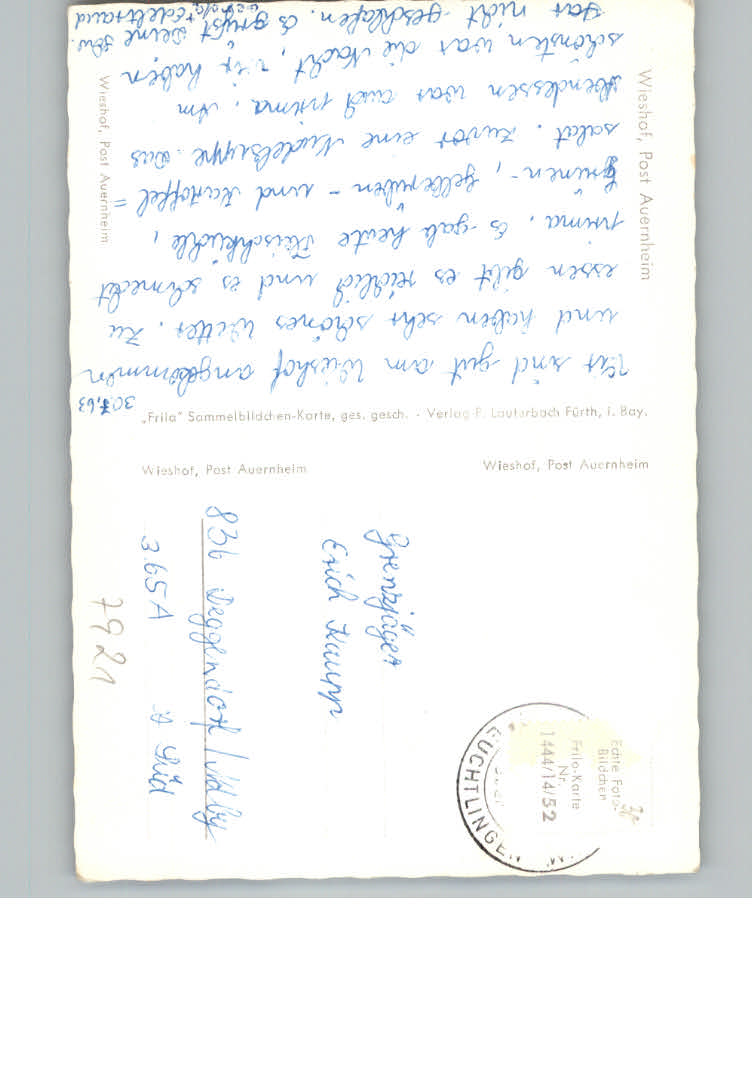 30.7.63
Wir sind gut am Wieshof angekommen
und haben sehr schönes Wetter. Zu
essen gibt es reichlich und es schmeckt
prima. Es gab heute Fleischküchle,
grünen-, gelberüben- und Kartoffel=
salat. Zuvor eine Nudelsuppe. Das
Abendessen war auch prima. Am
schönsten war die Nacht, wir haben
gar nicht geschlafen. Es grüßt Deine
Edeltraud
Wieshof, Post Auernheim
Wieshof, Post Auernheim
„Frila" Sammelbildchen-Karte, ges. gesch. - Verlag P. Lauterbach Fürth, i. Bay.
Wieshof, Post Auernheim
Wieshof, Post Auernheim
Echte Foto-
Bildchen
Frilo-Karte
Nr.
1444/14/52
Grenzjäger
Erich
836 Deggendorf/Ndby
3.65A
7921